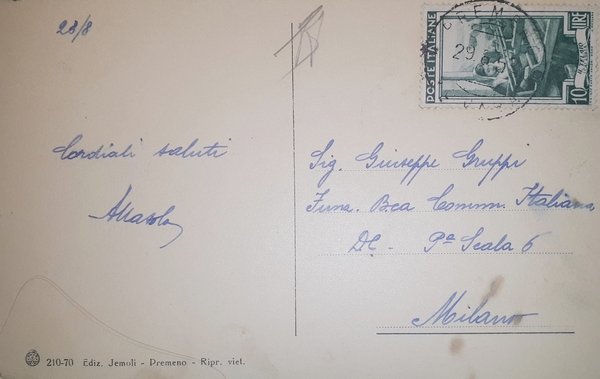 23/8
Cordiali saluti
POSTE ITALIANE
10 LIRE
29
Sig. Giuseppe Gruppi
Funz. Bca Comm. Italiana
DC - Pª Scala 6
Milano
210-70 Ediz. Jemoli - Premeno - Ripr. viet.